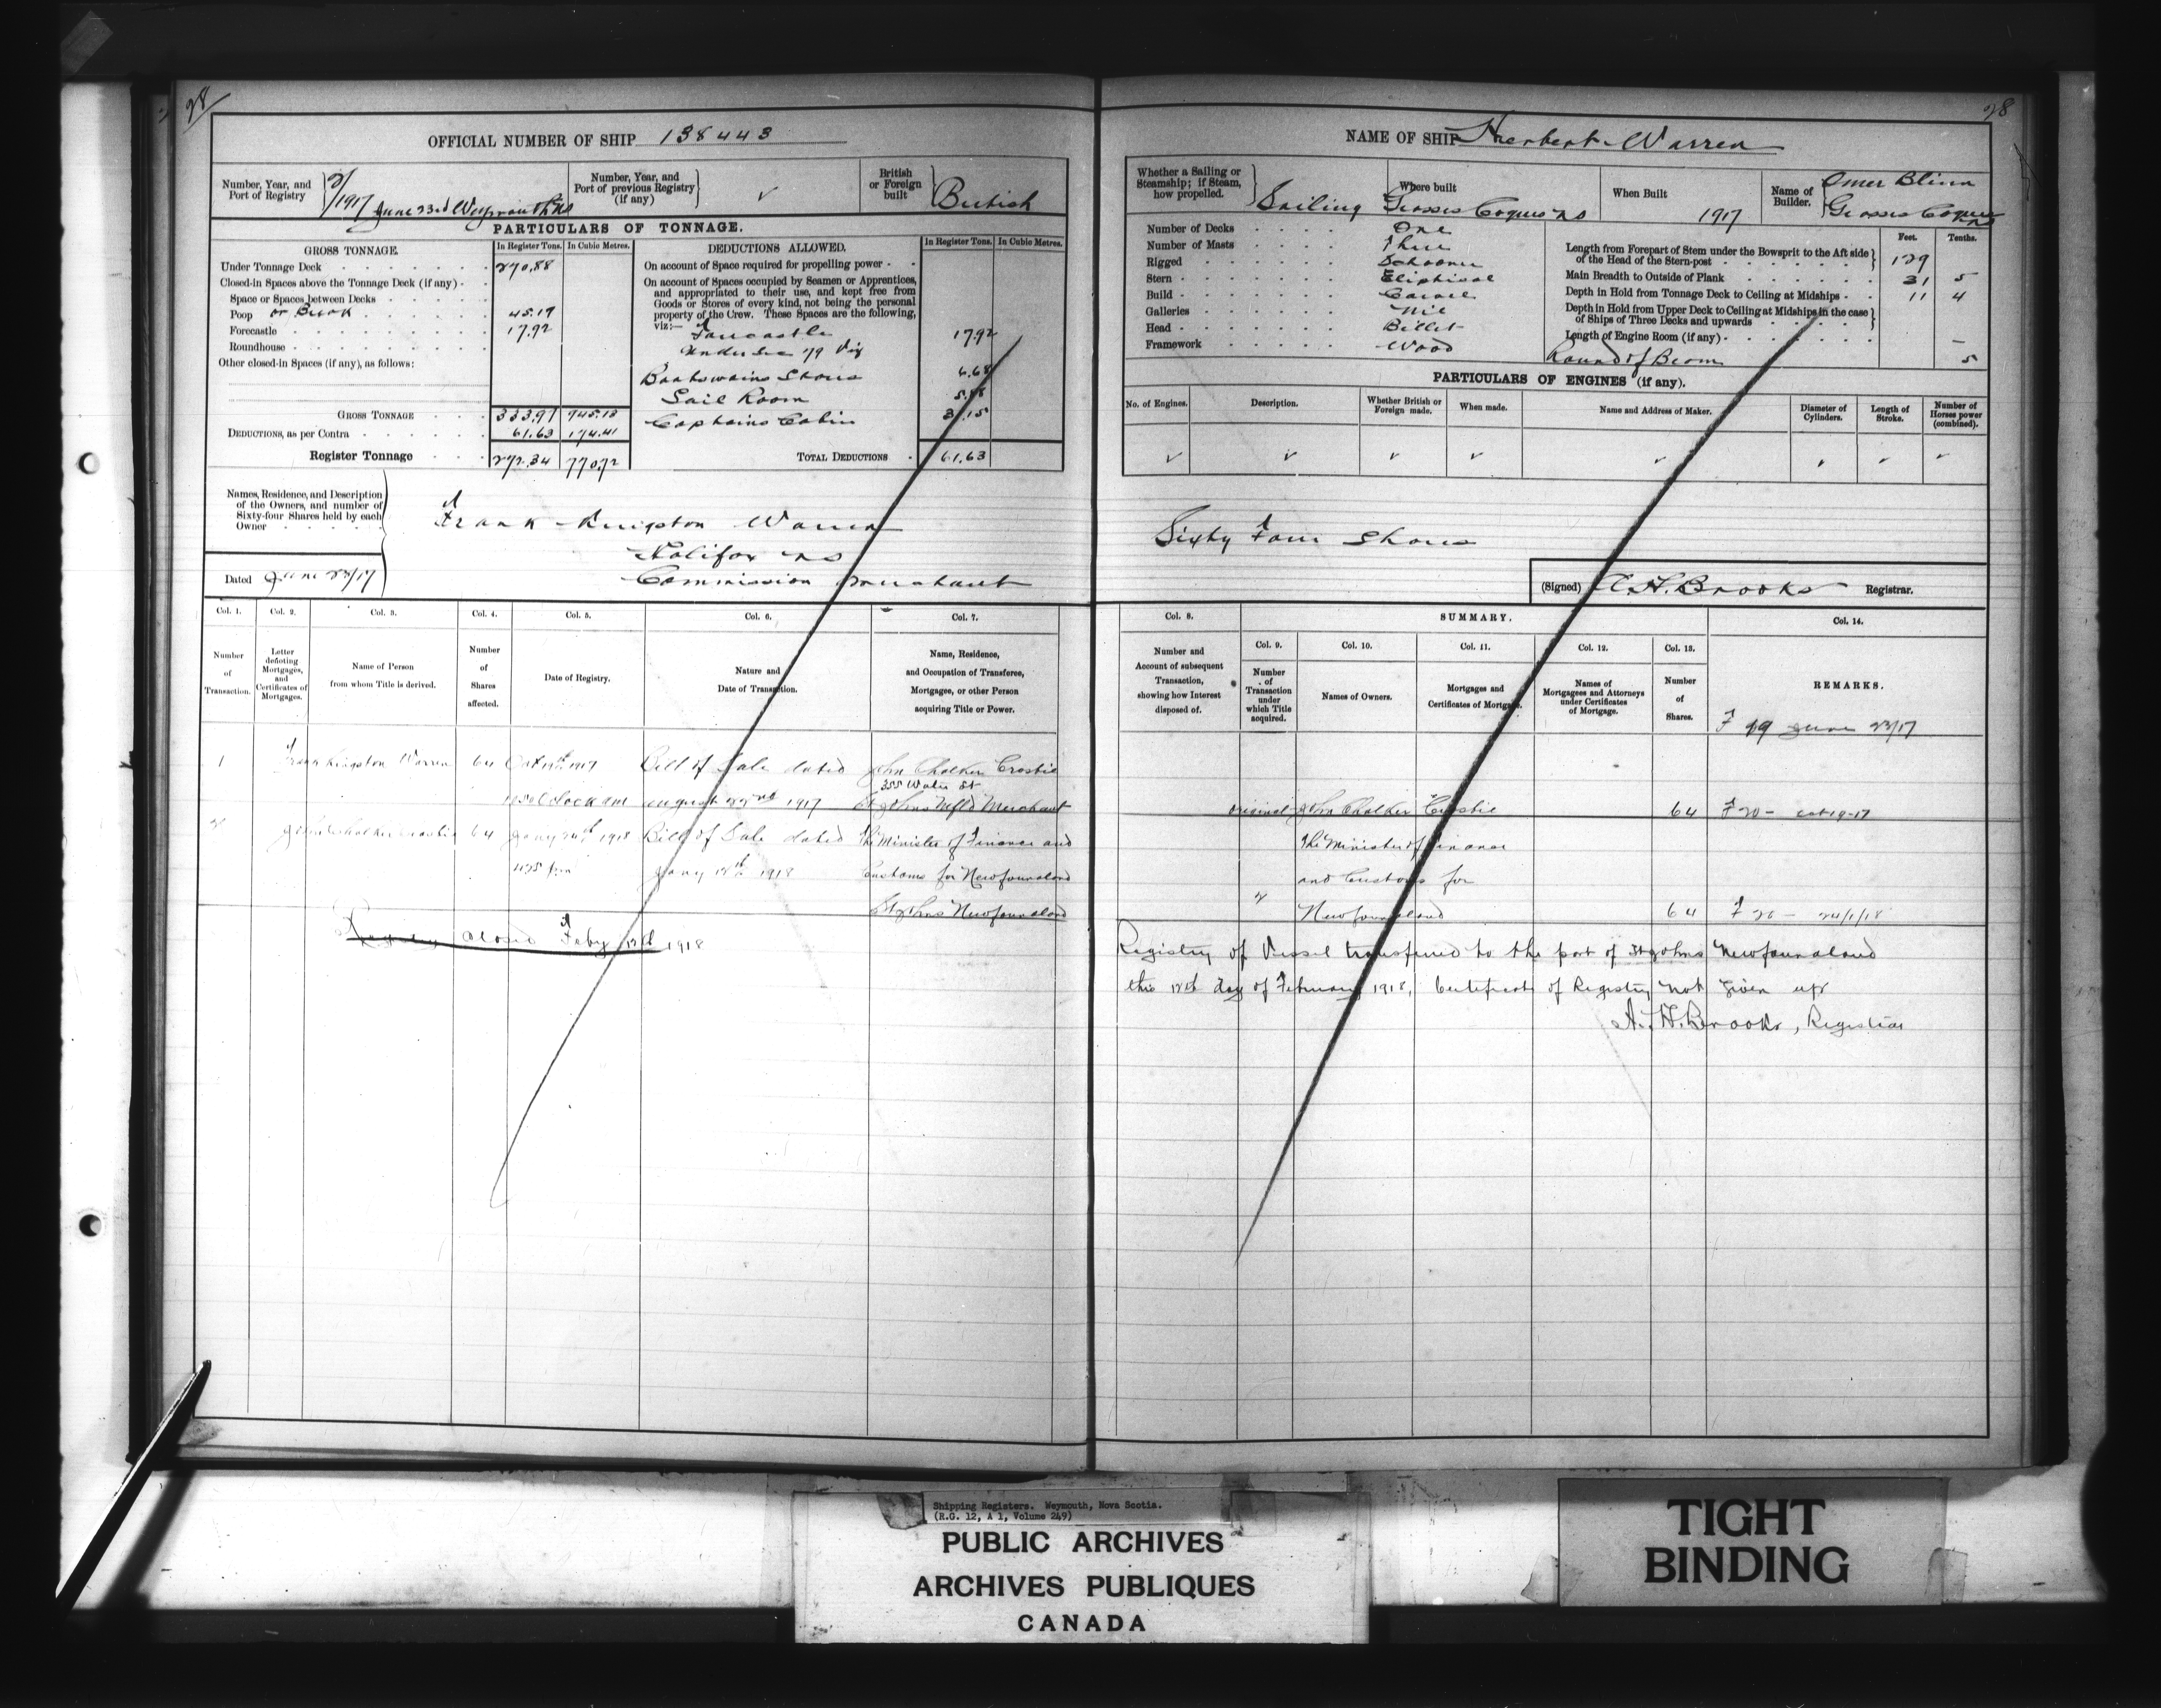 28
28
OFFICIAL NUMBER OF SHIP 138443
Number, Year, and Port of Registry 2/1917 June 23rd Weymouth NS
Number, Year, and Port of previous Registry (if any)
British or Foreign built British
PARTICULARS OF TONNAGE.
GROSS TONNAGE. In Register Tons. In Cubic Metres.
Under Tonnage Deck 270.88
Closed-in Spaces above the Tonnage Deck (if any)
Space or Spaces between Decks
Poop or Break 45.17
Forecastle 17.92
Roundhouse
Other closed-in Spaces (if any), as follows:
GROSS TONNAGE 333.97 945.13
DEDUCTIONS, as per Contra 61.63 174.41
Register Tonnage 272.34 770.72
DEDUCTIONS ALLOWED. In Register Tons. In Cubic Metres.
On account of Space required for propelling power
On account of Spaces occupied by Seamen or Apprentices, and appropriated to their use, and kept free from Goods or Stores of every kind, not being the personal property of the Crew. These Spaces are the following, viz:—
Forecastle 17.92
Under Sec 79 Viz
Boatswains Stores 6.68
Sail Room 5.88
Captains Cabin 31.15
TOTAL DEDUCTIONS 61.63
Names, Residence, and Description of the Owners, and number of Sixty-four Shares held by each Owner
Frank Kingston Warren
Halifax NS
Commission Merchant
Dated June 23/17
Col. 1. Col. 2. Col. 3. Col. 4. Col. 5. Col. 6. Col. 7.
Number of Transaction.
Letter denoting Mortgages, and Certificates of Mortgages.
Name of Person from whom Title is derived.
Number of Shares affected.
Date of Registry.
Nature and Date of Transaction.
Name, Residence, and Occupation of Transferee, Mortgagee, or other Person acquiring Title or Power.
1 Frank Kingston Warren 64 Oct 19th 1917 Bill of Sale dated John Chalker Crosbie
355 Water St
O'Clock am August 22nd 1917 St Johns Nfld Merchant
2 John Chalker Crosbie 64 Jany 24th 1918 Bill of Sale dated The Minister of Finance and
Jany 18th 1918 Customs for Newfoundland
St Johns Newfoundland
Registry Closed Feby 12th 1918
NAME OF SHIP Herbert Warren
Whether a Sailing or Steamship; if Steam, how propelled. Sailing
Where built Grosses Coques NS
When Built 1917
Name of Builder. Omer Blinn
Grosses Coques NS
Number of Decks One
Number of Masts Three
Rigged Schooner
Stern Eliptical
Build Carvel
Galleries Nil
Head Billet
Framework Wood
Feet. Tenths.
Length from Forepart of Stem under the Bowsprit to the Aft side of the Head of the Stern-post 129
Main Breadth to Outside of Plank 31 5
Depth in Hold from Tonnage Deck to Ceiling at Midships 11 4
Depth in Hold from Upper Deck to Ceiling at Midships in the case of Ships of Three Decks and upwards
Length of Engine Room (if any)
Round of Beam 5
PARTICULARS OF ENGINES (if any).
No. of Engines.
Description.
Whether British or Foreign made.
When made.
Name and Address of Maker.
Diameter of Cylinders.
Length of Stroke.
Number of Horses power (combined).
Sixty Four Shares
(Signed) A. H. Brooks Registrar.
Col. 8. SUMMARY. Col. 14.
Col. 9. Col. 10. Col. 11. Col. 12. Col. 13.
Number and Account of subsequent Transaction, showing how Interest disposed of.
Number of Transaction under which Title acquired.
Names of Owners.
Mortgages and Certificates of Mortgage.
Names of Mortgagees and Attorneys under Certificates of Mortgage.
Number of Shares.
REMARKS.
F 19 June 23/17
Original John Chalker Crosbie 64 F 20 - Oct 19-17
The Minister of Finance
and Customs for
2 Newfoundland 64 F 26 - 24/1/18
Registry of Vessel transferred to the port of St Johns Newfoundland
this 12th day of February 1918, Certificate of Registry not given up
A. H. Brooks, Registrar
Shipping Registers. Weymouth, Nova Scotia.
(R.G. 12, A 1, Volume 249)
PUBLIC ARCHIVES
ARCHIVES PUBLIQUES
CANADA
TIGHT
BINDING